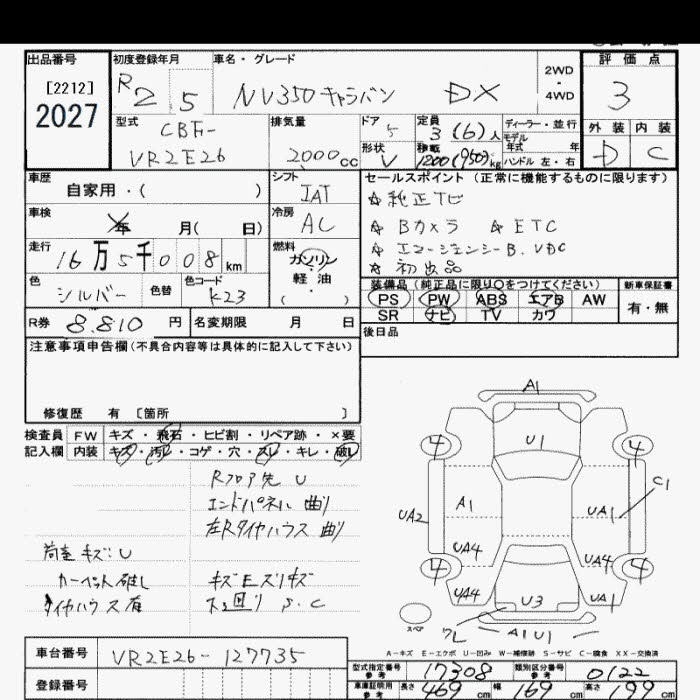 出品番号 初度登録年月 車名・グレード 2WD・4WD 評価点
[2212] 2027 R2 5 NV350キャラバン DX 3
型式 CBF-VR2E26 排気量 2000cc ドア 5 定員 3(6)人 ディーラー・並行 外装 内装
形状 V 積載 1200(950)kg モデル年式 年 ハンドル 左・右 D C
車歴 自家用・( ) シフト IAT セールスポイント (正常に機能するものに限ります)
車検 年 月( 日) 冷房 AC ☆ 純正TV
☆ Bカメラ ☆ ETC
走行 16万5千008km 燃料 ガソリン 軽油 ( ) ☆ エマージェンシーB. VDC
☆ 初出品
色 シルバー 色替 色コード K23 装備品 (純正品に限り○をつけてください) 新車保証書
PS PW ABS エアB AW 有・無
R券 8.810 円 名変期限 月 日 SR ナビ TV カワ
注意事項申告欄(不具合内容等は具体的に記入して下さい) 後日品
修復歴 有 [箇所 ]
検査員 FW キズ・飛石・ヒビ割・リペア跡・×要
記入欄 内装 キズ・汚レ・コゲ・穴・スレ・キレ・破レ
Rフロア先 U
エンドパネル 曲り
左Rタイヤハウス 曲り
荷室 キズ:U
カーペット破レ キズEスリキズ
タイヤハウス 有 下廻り S.C
A1
U1
4 4
C1
A1 UA1
UA2
UA4 UA4
4 4
UA4 UA1
U3
スペア ワレ A1U1
A-キズ E-エクボ U-凹み W-補修跡 S-サビ C-腐食 XX-交換済
車台番号 VR2E26-127735
型式指定番号 参考 17308 類別区分番号 参考 0122
登録番号 車庫証明用 参考 長さ 469cm 幅 169cm 高さ 199cm